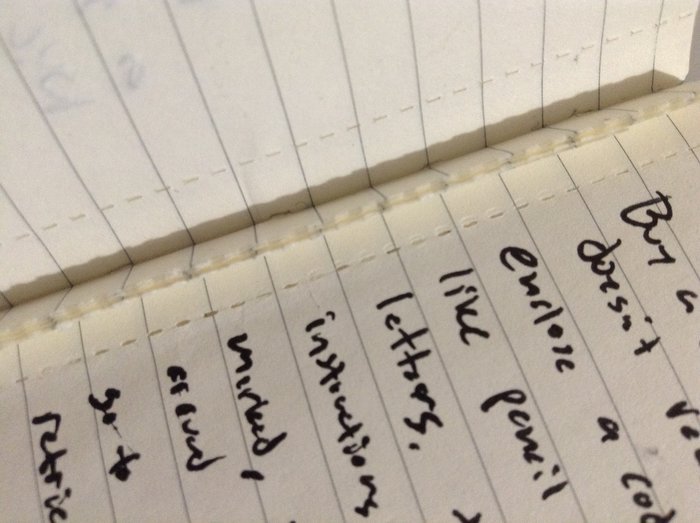 Buy a
doesn't
enclose a
like pencil
letters.
instructions
marked,
around
go to